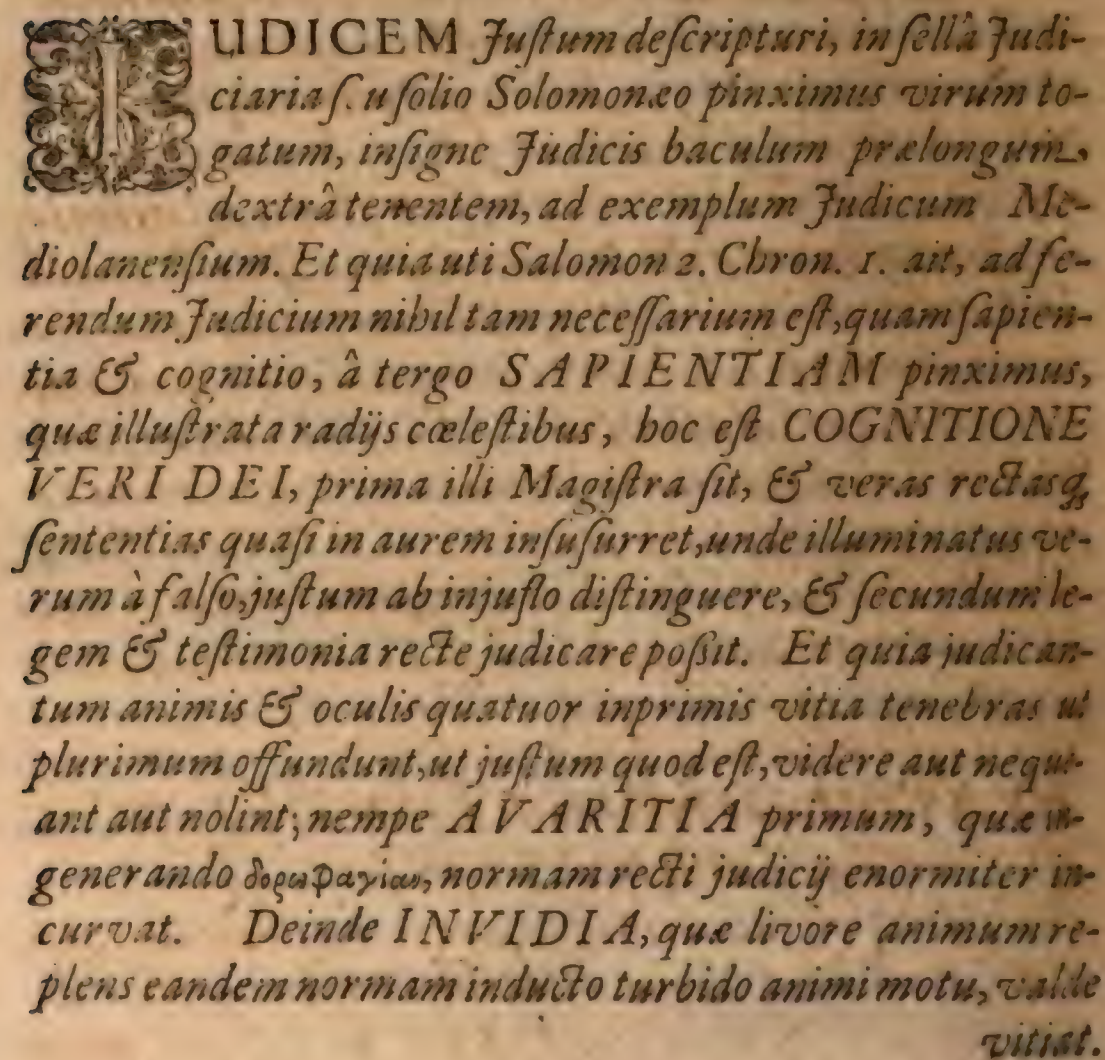 IUDICEM Juſtum deſcripturi, in ſellâ Judi-
ciaria ſ. u ſolio Solomonæo pinximus virum to-
gatum, inſigne Judicis baculum prælongum,
dextrâ tenentem, ad exemplum Judicum Me-
diolanenſium. Et quia uti Salomon 2. Chron. 1. ait, ad fe-
rendum Judicium nihil tam neceſſarium eſt, quam ſapien-
tia & cognitio, â tergo SAPIENTIAM pinximus,
quæ illuſtrata radijs cœleſtibus, hoc eſt COGNITIONE
VERI DEI, prima illi Magiſtra ſit, & veras rectasq́;
ſententias quaſi in aurem inſuſurret, unde illuminatus ve-
rum à falſo, juſtum ab injuſto diſtinguere, & ſecundum le-
gem & teſtimonia recte judicare poſsit. Et quia judican-
tum animis & oculis quatuor inprimis vitia tenebras ut
plurimum offundunt, ut juſtum quod eſt, videre aut nequе-
ant aut nolint; nempe AVARITIA primum, quæ in-
generando δορωφαγίαν, normam recti judicij enormiter in-
curvat. Deinde INVIDIA, quæ livore animum re-
plens eandem normam inducto turbido animi motu, valde
vitiat.